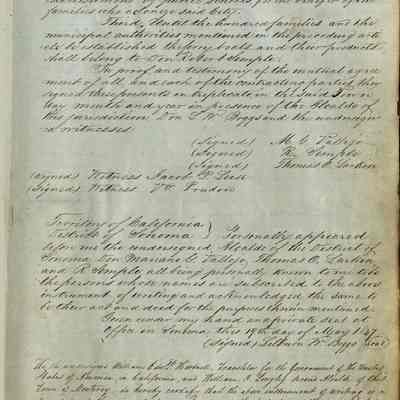 families who colonize said city.
Third. Until the hundred families and the
municipal authorities mentioned in the preceding arti-
cle be established the ferry boats and their products
shall belong to Don Robert Semple.
In proof and testimony of the mutual agree-
ment of all and each of the contracting parties, they
signed these presents in duplicate in the
day month and year in presence of the Alcalde of
this jurisdiction Don L. W. Boggs and the undersign-
ed witnesses
(Signed) M. G. Vallejo
(Signed) R. Semple
(Signed) Thomas O. Larkin
(Signed) Witness Jacob P. Leese
(Signed) Witness V. Prudon
Territory of California
District of Sonoma } Personally appeared
before me the undersigned Alcalde of the District of
Sonoma Don Mariano G. Vallejo, Thomas O. Larkin,
and R. Semple all being personally known to me to be
the persons whose names are subscribed to the above
instrument of writing and acknowledged the same to
be their act and deed for the purposes therein mentioned
Given under my hand and private seal at
Office in Sonoma this 19th day of May 1847.
(Signed) Lilburn W. Boggs (Seal)
We the undersigned William E. P. Hartnell, Translator for the Government of the United
States of America, in California, and William
Town of Monterey, do hereby certify that the above instrument of writing is a